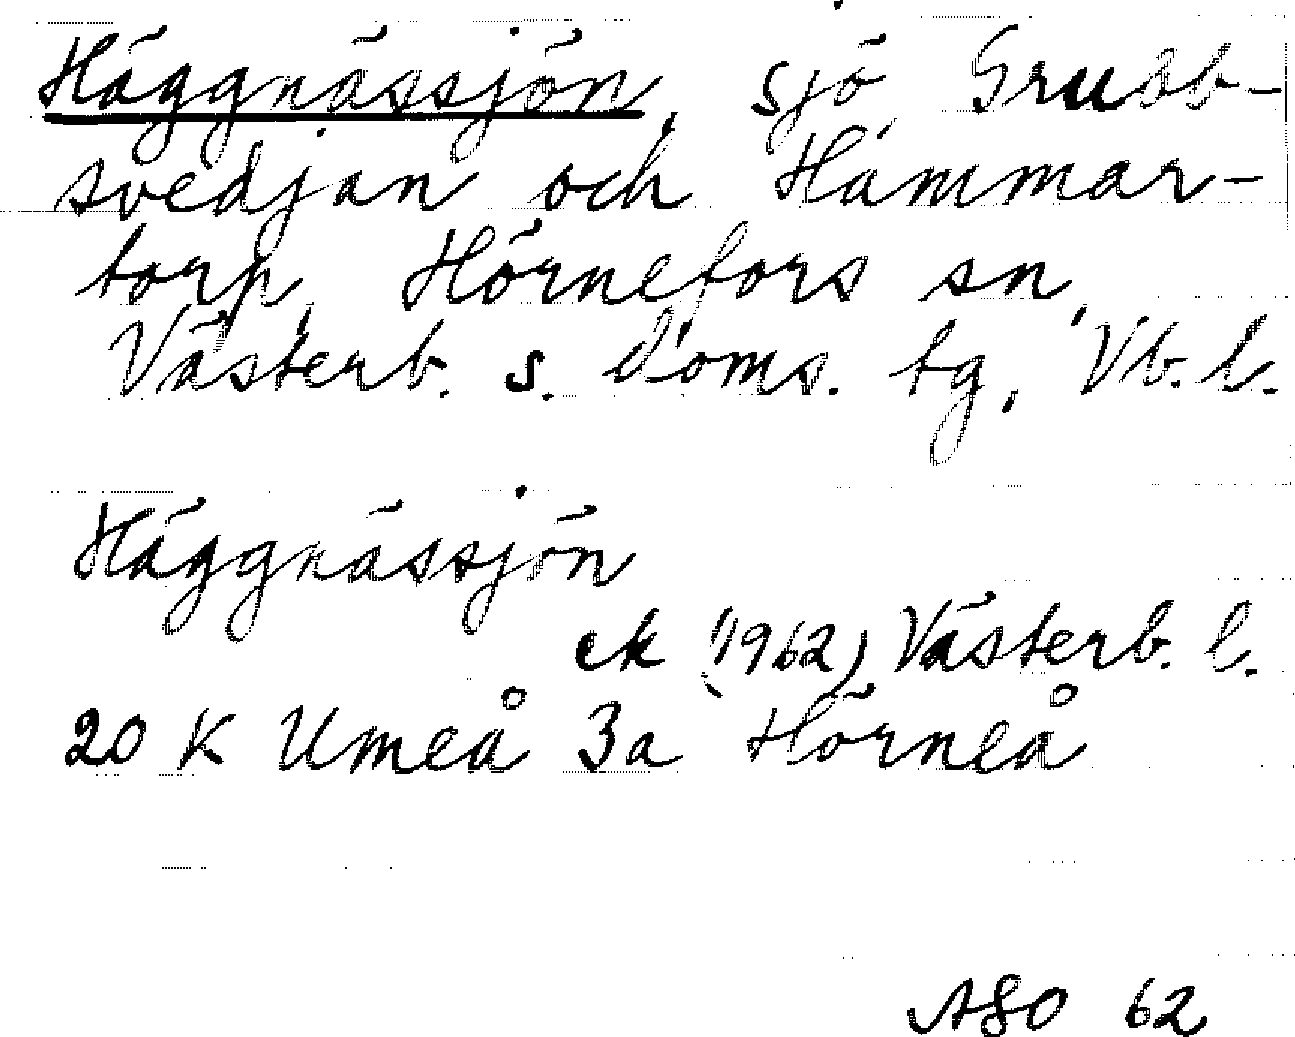 Häggnässjön, sjö Grubb-
svedjan och Hammar-
torp, Hörnefors sn,
Västerb. s. doms. tg, Vb. l.
Häggnässjön
ek (1962) Västerb. l.
20 K Umeå 3a Hörneå
ASO 62